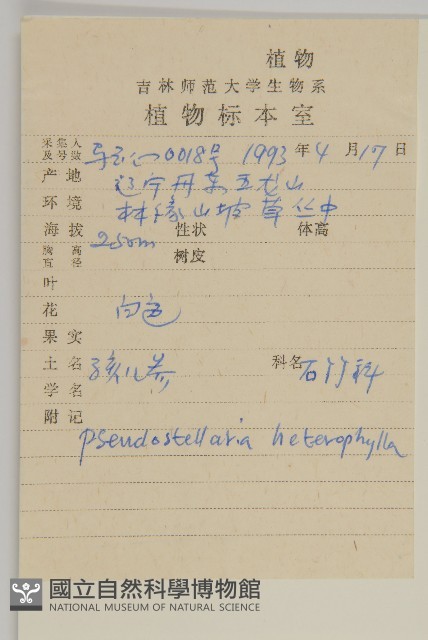 植物
吉林师范大学生物系
植物标本室
采集人及号数 0018号 1993年4月17日
产地 辽宁丹东五龙山
环境 林缘山坡草丛中
海拔 250m 性状 体高
胸高直径 树皮
叶
花 白色
果实
土名 孩儿参 科名 石竹科
学名
附记
Pseudostellaria heterophylla
國立自然科學博物館
NATIONAL MUSEUM OF NATURAL SCIENCE